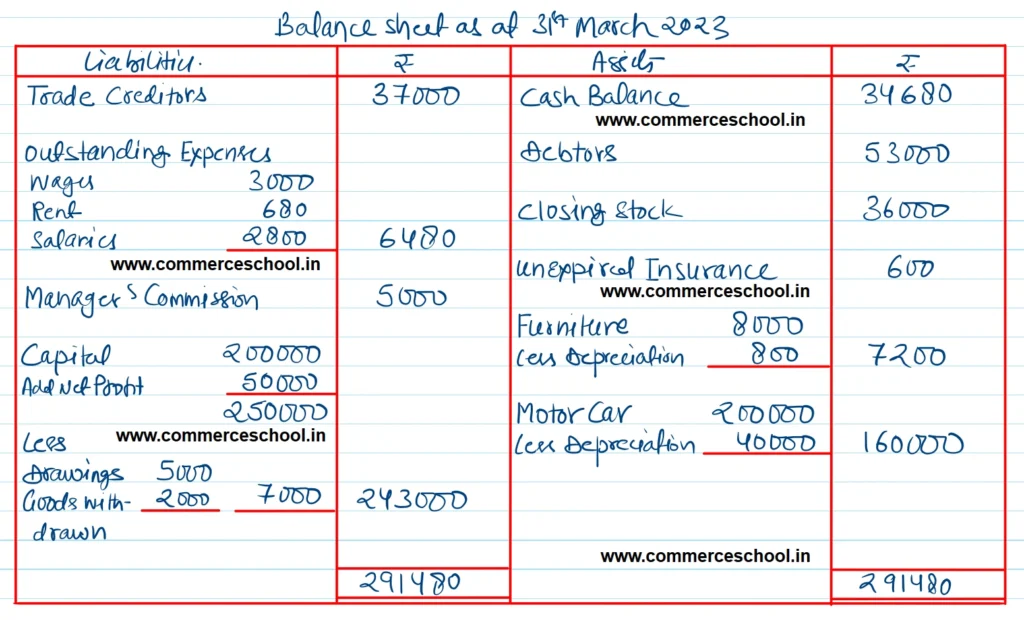 Balance sheet as at 31st March 2023
Liabilities. ₹ Assets ₹
Trade Creditors 37000 Cash Balance 34680
www.commerceschool.in
Outstanding Expenses Debtors 53000
Wages 3000
Rent 680 Closing Stock 36000
Salaries 2800 6480
www.commerceschool.in Unexpired Insurance 600
www.commerceschool.in
Manager's Commission 5000
Furniture 8000
Capital 200000 Less Depreciation 800 7200
Add Net Profit 50000
250000 Motor Car 200000
Less www.commerceschool.in Less Depreciation 40000 160000
Drawings 5000
Goods with- 2000 7000 243000
drawn
www.commerceschool.in
291480 291480